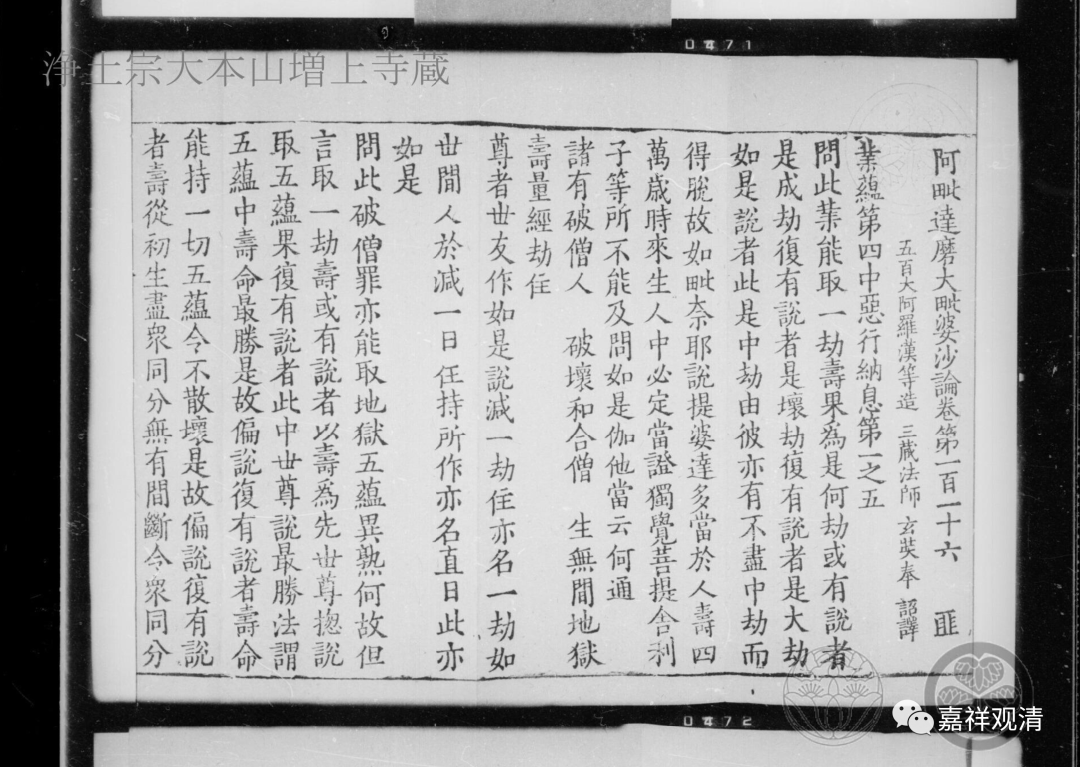 0471
浄土宗大本山増上寺蔵
阿毗達磨大毗婆沙論卷第一百一十六 匪
五百大阿羅漢等造 三藏法師 玄奘奉 詔譯
業蘊第四中惡行納息第一之五
問此業能取一劫壽果為是何劫或有說者
是成劫復有說者是壞劫復有說者是大劫
如是說者此是中劫由彼亦有不盡中劫而
得脫故如毗奈耶說提婆達多當於人壽四
萬歲時來生人中必定當證獨覺菩提舍利
子等所不能及問如是伽他當云何通
諸有破僧人 破壞和合僧 生無間地獄
壽量經劫住
尊者世友作如是說減一劫住亦名一劫如
世間人於減一日任持所作亦名直日此亦
如是
問此破僧罪亦能取地獄五蘊異熟何故但
言取一劫壽或有說者以壽為先世尊揔說
取五蘊果復有說者此中世尊說最勝法謂
五蘊中壽命最勝是故偏說復有說者壽命
能持一切五蘊令不散壞是故偏說復有說
者壽從初生盡衆同分無有間斷令衆同分
0472
嘉祥观清